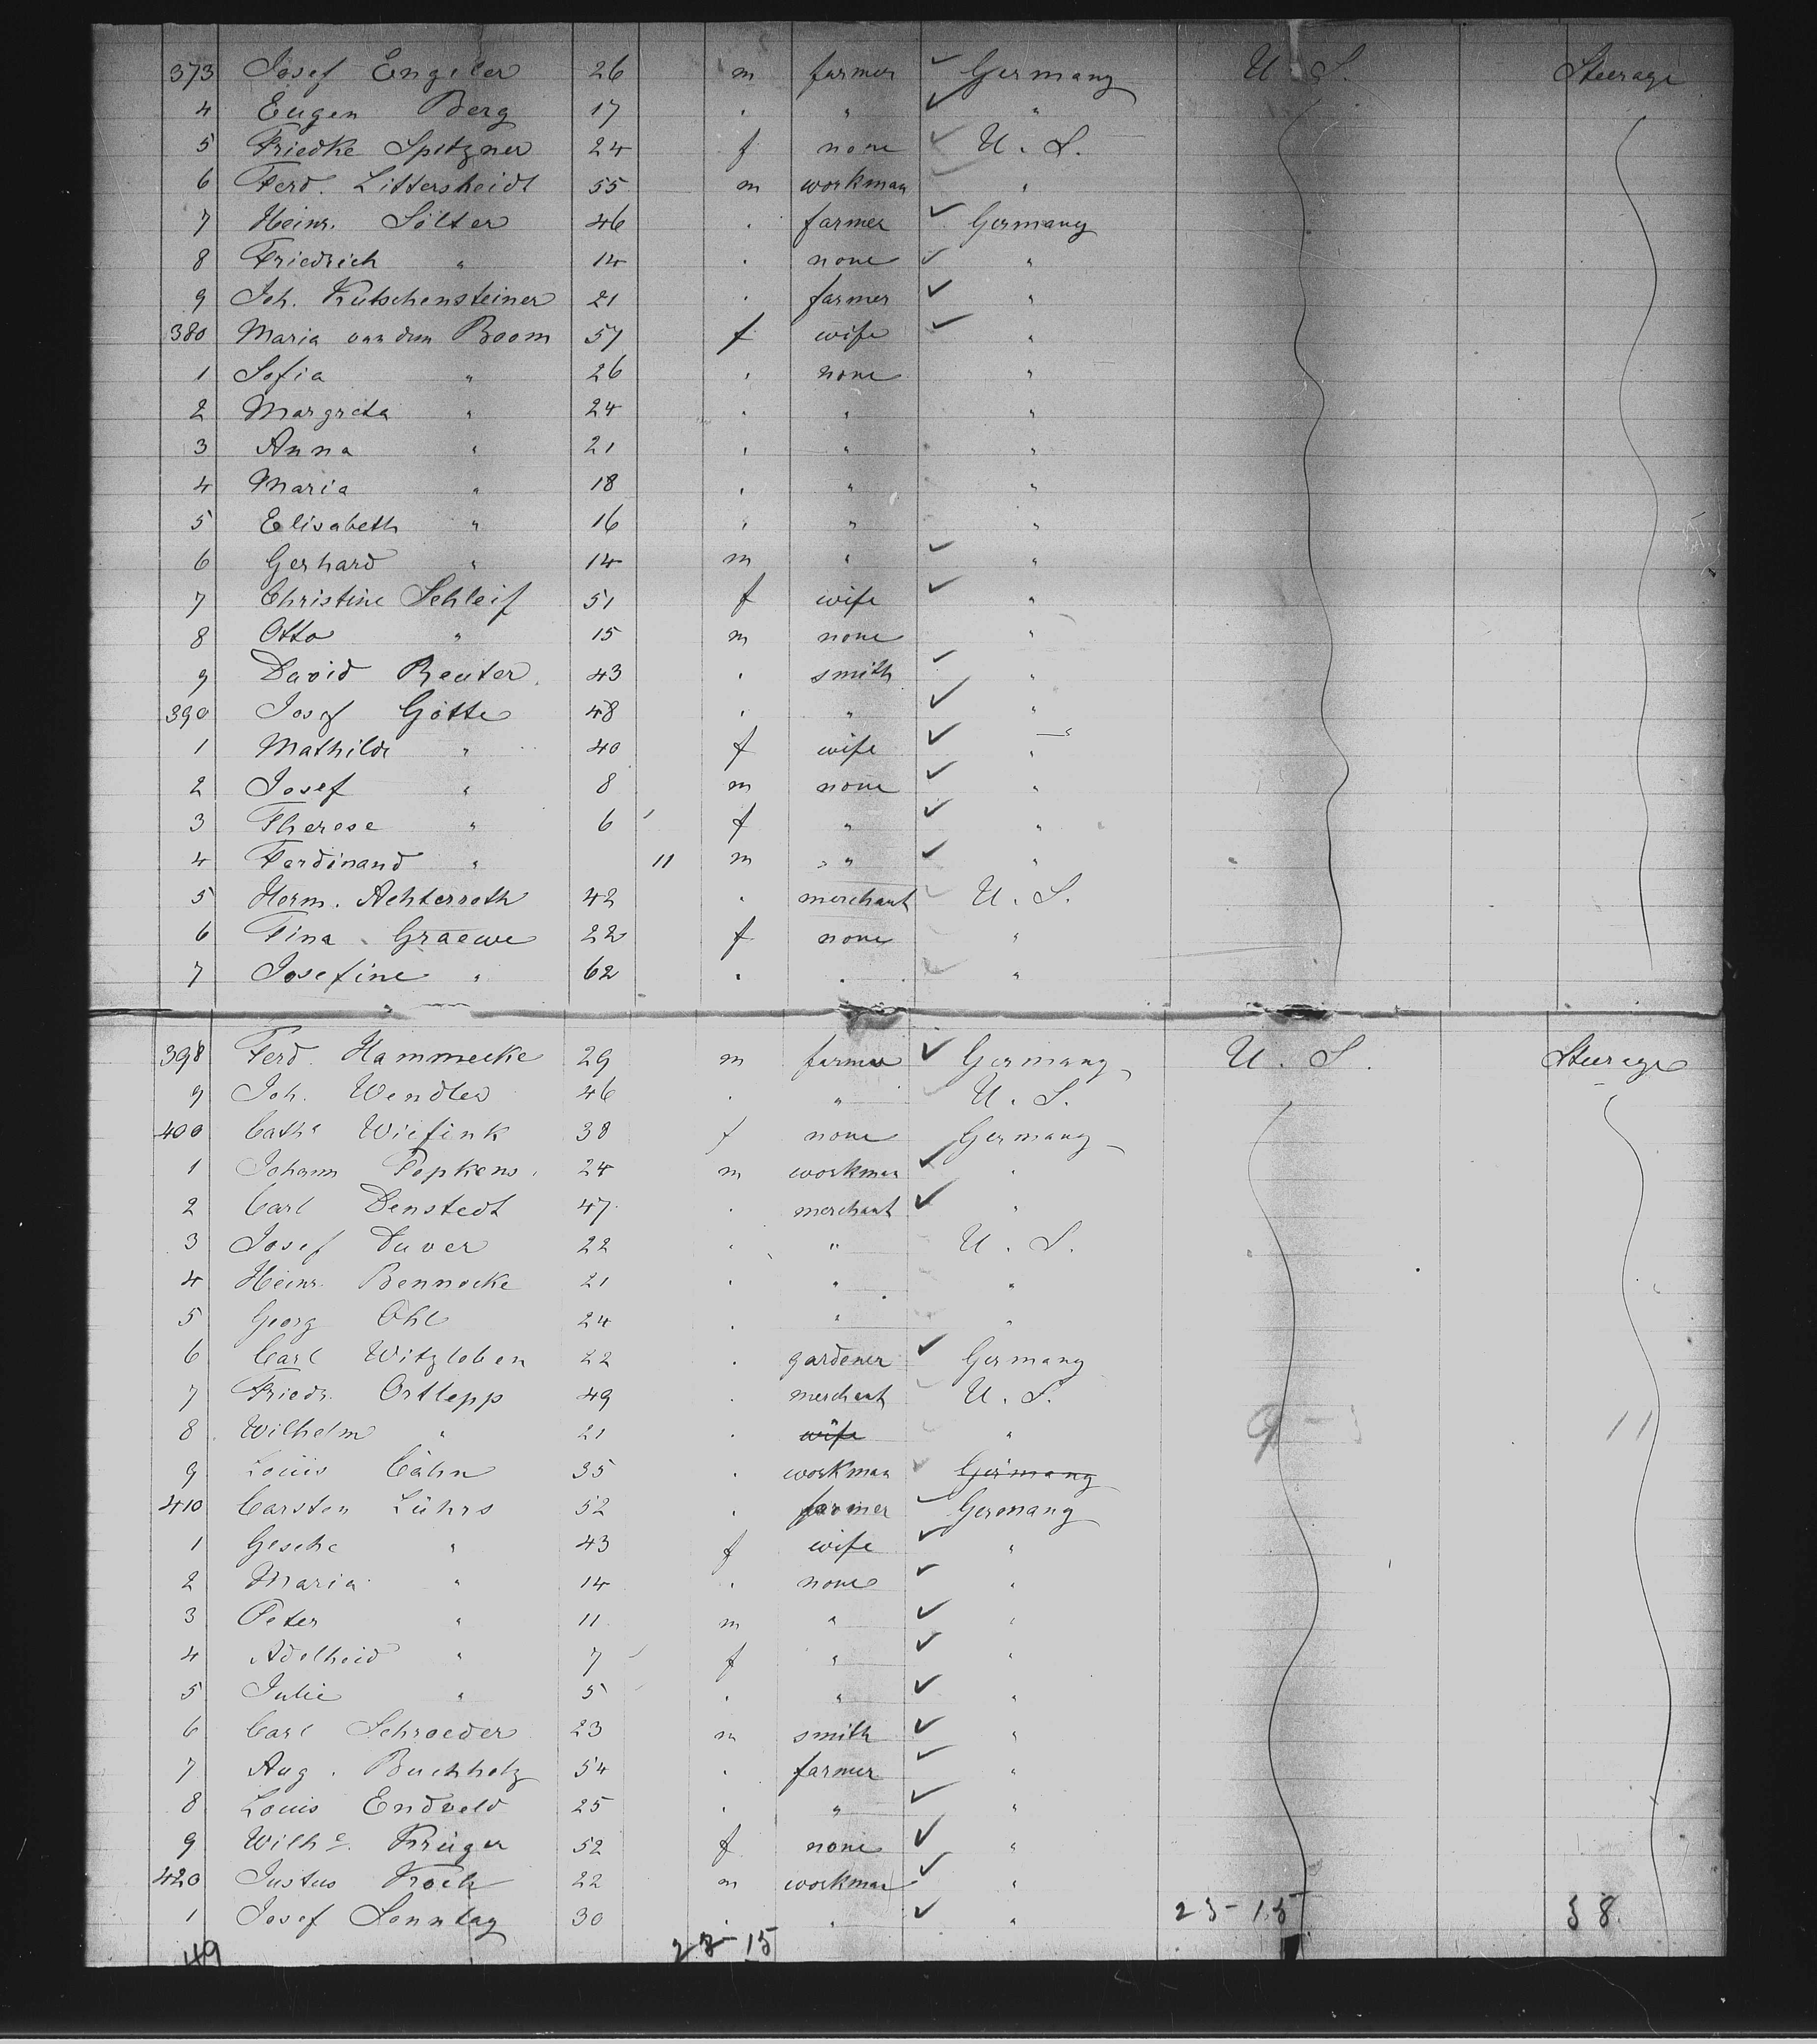 373 Josef Engeler 26 m farmer ✓ Germany U. S. Steerage
4 Eugen Berg 17 " " ✓ "
5 Friedke Spitzner 24 f none ✓ U. S.
6 Ferd. Littersheidt 55 m workman "
7 Heinr. Sölter 46 " farmer ✓ Germany
8 Friedrich " 14 " none ✓ "
9 Joh. Kutschensteiner 21 " farmer ✓ "
380 Maria van dem Boom 57 f wife ✓ "
1 Sofia " 26 " none "
2 Margreta " 24 " " "
3 Anna " 21 " " "
4 Maria " 18 " " "
5 Elisabeth " 16 " " "
6 Gerhard " 14 m " ✓ "
7 Christine Schleif 51 f wife ✓ "
8 Otto " 15 m none "
9 David Reuter 43 " smith ✓ "
390 Josef Götte 48 " " ✓ "
1 Mathilde " 40 f wife ✓ "
2 Josef " 8 m none ✓ "
3 Therese " 6 f " ✓ "
4 Ferdinand " 11 m " ✓ "
5 Herm. Achterroth 42 " merchant ✓ U. S.
6 Tina Graewe 22 f none "
7 Josefine " 62 " " ✓ "
398 Ferd. Hammecke 29 m farmer ✓ Germany U. S. Steerage
9 Joh. Wendler 46 " " U. S.
400 Cathe Wiefink 38 f none Germany
1 Johann Popkens 24 m workman ✓ "
2 Carl Denstedt 47 " merchant ✓ "
3 Josef Duver 22 " " U. S.
4 Heinr. Bennecke 21 " " "
5 Georg Ohl 24 " " "
6 Carl Witzleben 22 " gardener ✓ Germany
7 Friedr. Ortlepp 49 " merchant ✓ U. S.
8 Wilhelm " 21 " wife " 11
9 Louis Cahn 35 " workman ✓ Germany
410 Carsten Lührs 52 " farmer ✓ Germany
1 Gesche " 43 f wife ✓ "
2 Maria " 14 " none ✓ "
3 Peter " 11 m " ✓ "
4 Adelheid " 7 f " ✓ "
5 Julie " 5 " " ✓ "
6 Carl Schroeder 23 m smith ✓ "
7 Aug. Buchholz 54 " farmer ✓ "
8 Louis Endveld 25 " " ✓ "
9 Wilhe Krüger 52 f none ✓ "
420 Justus Koch 22 m workman ✓ "
1 Josef Sonntag 30 " " ✓ " 23-15 38
49 23-15